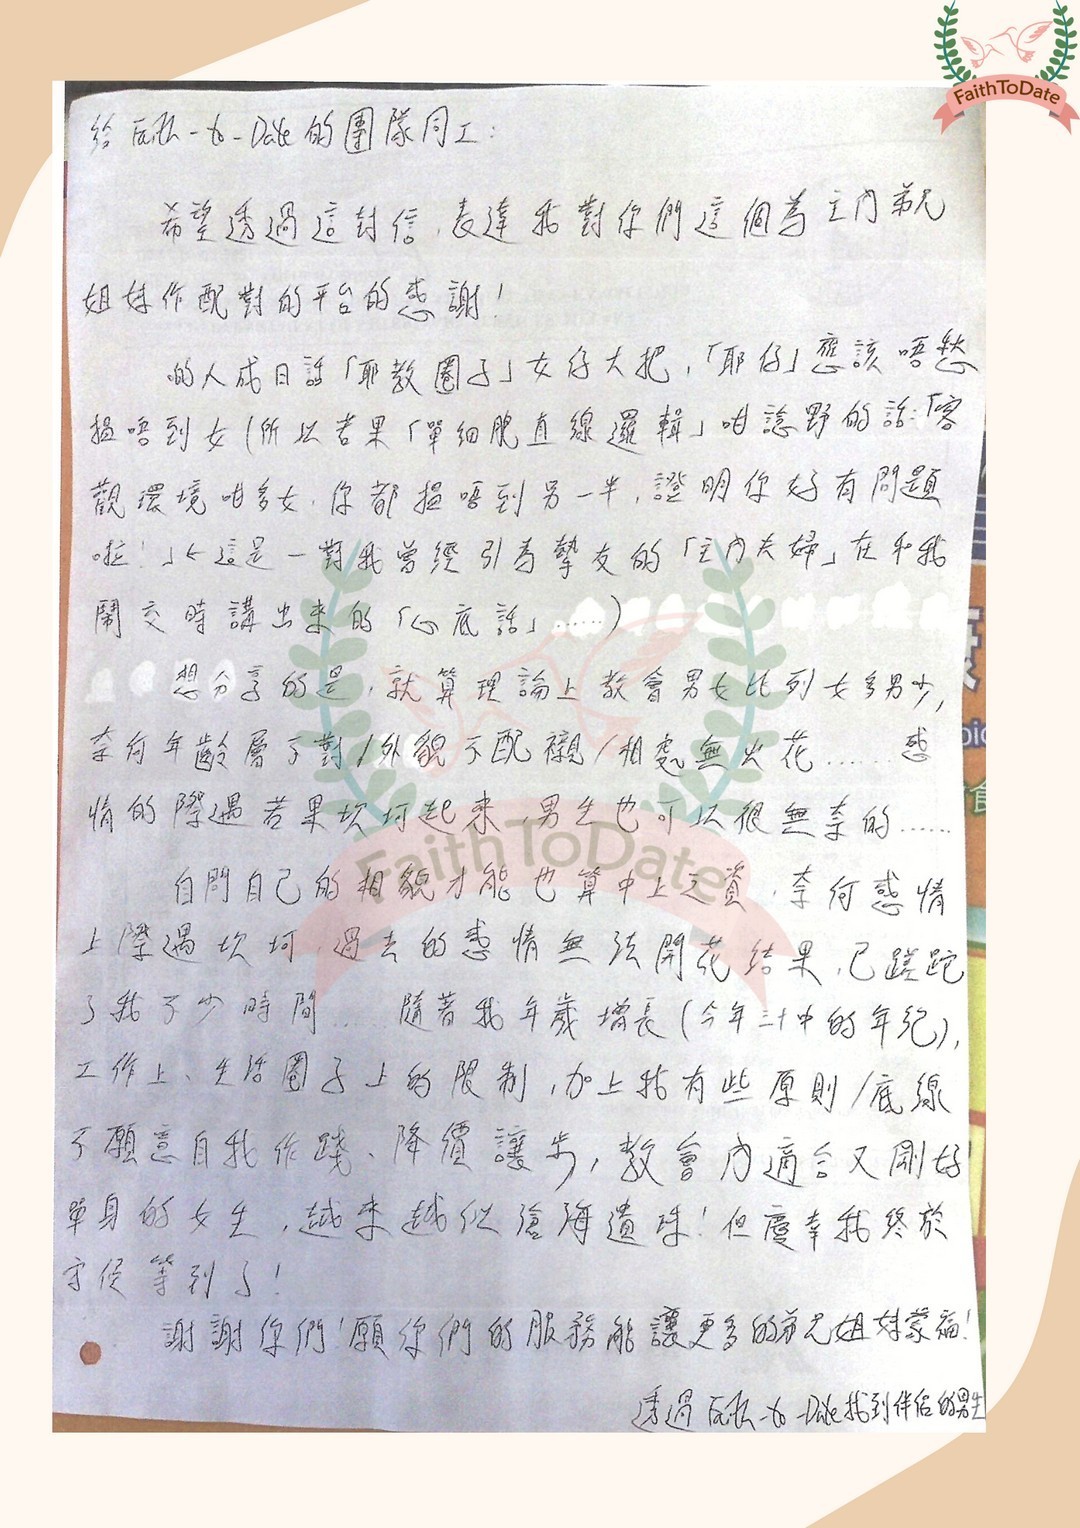 FaithToDate
給 Faith-to-Date 的團隊同工:
希望透過這封信,表達我對你們這個為主內弟兄
姐妹作配對的平台的感謝!
的人成日話「耶教圈子」女仔大把,「耶仔」應該唔愁
揾唔到女(所以若果「單細胞直線邏輯」咁諗野的話:「客
觀環境咁多女,你都揾唔到另一半,證明你好有問題
啦!」←這是一對我曾經引為摯友的「主內夫婦」在和我
鬧交時講出來的「心底話」……)
想分享的是,就算理論上教會男女比列女多男少,
奈何年齡層不對/外貌不配襯/相處無火花……感
情的際遇若果坎坷起來,男生也可以很無奈的……
自問自己的相貌才能也算中上之資,奈何感情
上際遇坎坷,過去的感情無法開花結果,已蹉跎
了我不少時間… 隨著我年歲增長(今年三十中的年紀),
工作上、生活圈子上的限制,加上我有些原則/底線
不願意自我作踐、降價讓步,教會內適合又剛好
單身的女生,越來越似滄海遺珠!但慶幸我終於
守得等到了!
謝謝你們!願你們的服務能讓更多的弟兄姐妹蒙福!
透過 Faith-to-Date 找到伴侶的男生
FaithToDate